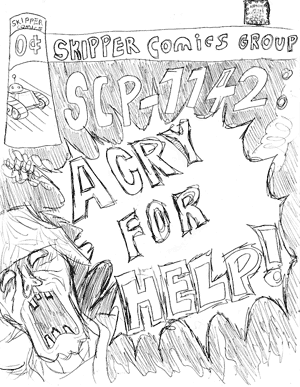 SKIPPER
COMICS
0¢
SKIPPER COMICS GROUP
SCP-1142
A CRY
FOR
HELP!